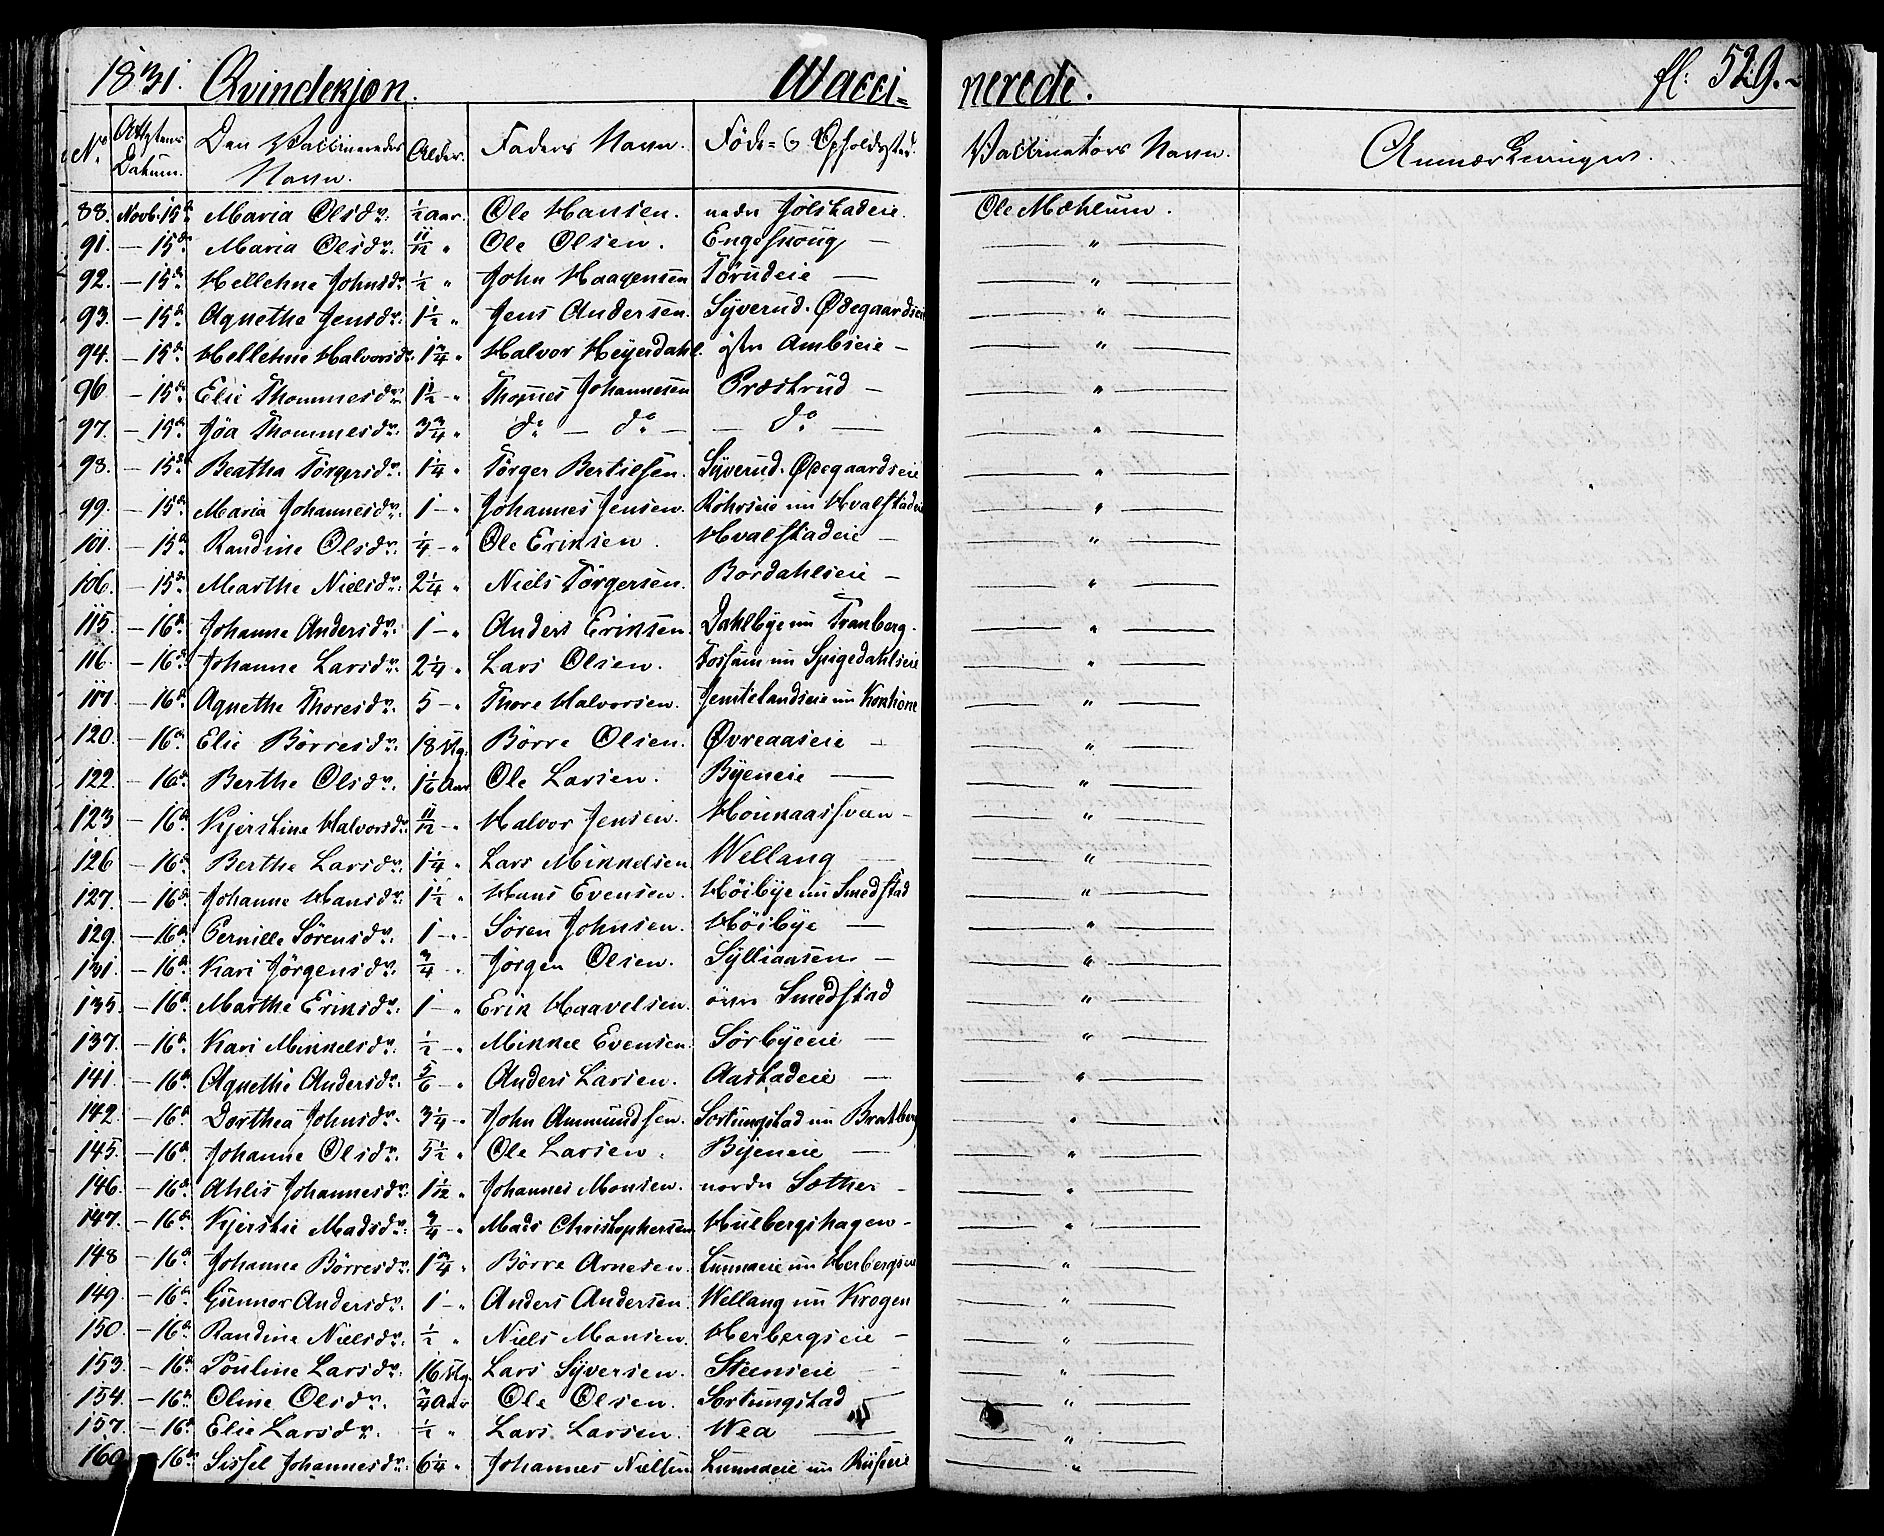 1831. Qvindekjøn. Wacci= nerede. fl: 529.
No Attestens Datum. Den Vaccineredes Navn. Alder. Faders Navn. Føde= & Opholdssted. Vaccinators Navn. Anmærkninger.
88. Novb. 15d Maria Olsdr. ½ Aar. Ole Hansen. nedr Jølstadeie. Ole Mæhlum.
91. — 15d Maria Olsdr. 11/12 " Ole Olsen. — "
92. — 15d Hellehne Johnsdr. ½ " John Haagensen Törudeie — "
93. — 15d Agnethe Jensdr. 1½ " Jens Andersen. Syverud. Ødegaardseie "
94. — 15d Hellehne Halvorsdr. 1¾ " Halvor Heyerdahl. østr Ambseie — "
96 — 15d Elie Thommesdr. 1½ — " Thomes Johannesen Præstrud — "
97. — 15d Jöa Thommesdr. 3¾ " do — do — — do — "
98. — 15d Beatha Törgersdr. 1¼ " Törger Bertilsen. Syverud. Ødegaardseie "
99. — 15d Maria Johannesdr. 1 — " Johannes Jensen. Röhrseie nu Hvalstadeie "
101. — 15d Randine Olsdr. ¼ — " Ole Eriksen. Hvalstadeie — "
106. — 15d Marthe Nielsdr. 2¼ " Niels Törgersen. Bordahlseie — "
115. — 16d Johanne Andersdr. 1 — " Anders Eriksen. Dahlbye nu Tranberg. "
116. — 16d Johanne Larsdr. 2¼ " Lars Olsen. Fossum nu Spigedahlseie "
117. — 16d Agnethe Thoresdr. 5 — " Thore Halvorsen. Jemtelandseie nu "
120. — 16d Elie Börresdr. 18 Ug. Börre Olsen. Øvreaaseie — "
122. — 16d Berthe Olsdr. 1 1/6 Aar Ole Larsen. Byeneie — "
123 — 16d Kjerstine Halvorsdr. 11/12 — " Halvor Jensen. — "
126 — 16d Berthe Larsdr. 1¼ " Lars Mikkelsen Wellang — "
127. — 16d Johanne Hansdr. 1½ " Hans Evensen. Höibye nu Smedstad "
129. — 16d Pernille Sörensdr. 1 — " Sören Johnsen. Höibye — "
131. — 16d Kari Jörgensdr. ¾ " Jörgen Olsen. Sylliaasen — "
135. — 16d Marthe Eriksdr. 1 — " Erik Haavelsen. övre Smedstad "
137. — 16d Kari Mikkelsdr. ½ — " Mikkel Evensen. Sörbyeeie — "
141 — 16d Agnethe Andersdr. 5/6 — " Anders Larsen. Aastadeie — "
142. — 16d Dorthea Johnsdr. 3¼ " John Ammundsen. Sortungstad nu Bratberg "
145. — 16d Johanne Olsdr. 5½ " Ole Larsen. Byeneie — "
146. — 16d Ahlis Johannesdr. 1 1/12 " Johannes Monsen. nordr Sæther — "
147. — 16d Kjerstie Madsdr. ¾ — " Mads Christophersen Hulbergshagen — "
148 — 16d Johanne Börresdr. 1¾ " Börre Arnesen. Lunnaeie nu Herbergseie "
149. — 16d Gunnor Andersdr. 1 — " Anders Andersen. Wellang nu Krogen "
150. — 16d Randine Nielsdr. ½ " Niels Monsen. Herbergseie — "
153. — 16d Pouline Larsdr. 16 Ug. Lars Syversen. Steenseie — "
154. — 16d Oline Olsdr. ¾ Aar Ole Olsen. Sortungstad "
157. — 16d Elie Larsdr. ½ " Lars Larsen. Wea — "
160 — 16d Sissel Johannesdr. 6¼ " Johannes Nielsen Lunnaeie nu "